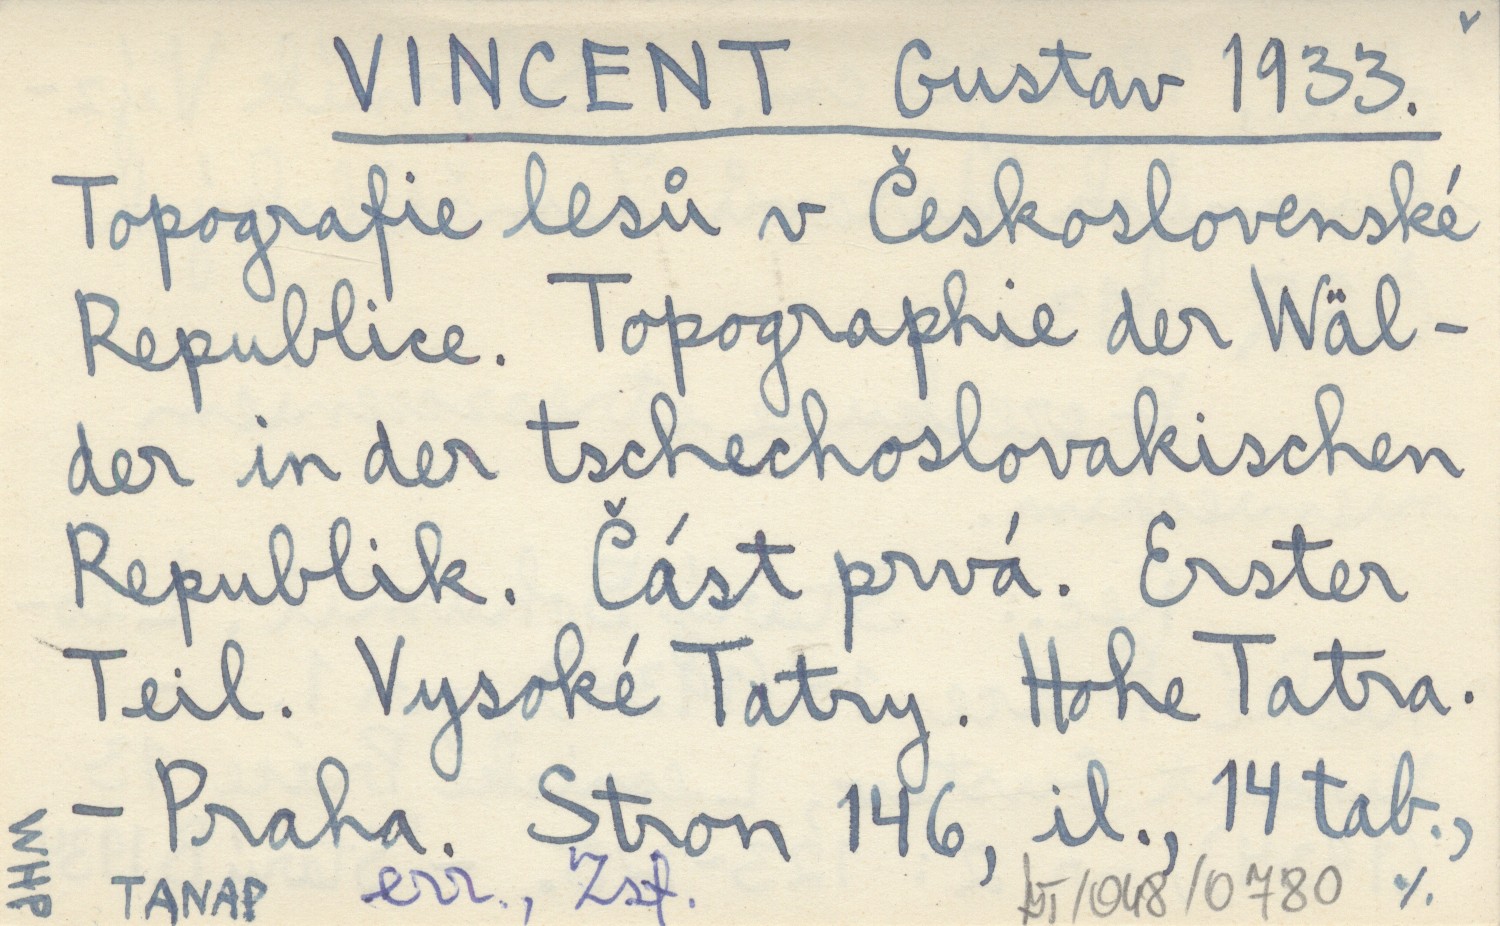 VINCENT Gustav 1933.
Topografie lesů v Československé
Republice. Topographie der Wäl-
der in der tschechoslovakischen
Republik. Část prvá. Erster
Teil. Vysoké Tatry. Hohe Tatra.
- Praha. Stron 146, il., 14 tab.,
err., Zsf.
WHP
TANAP
/048/0780